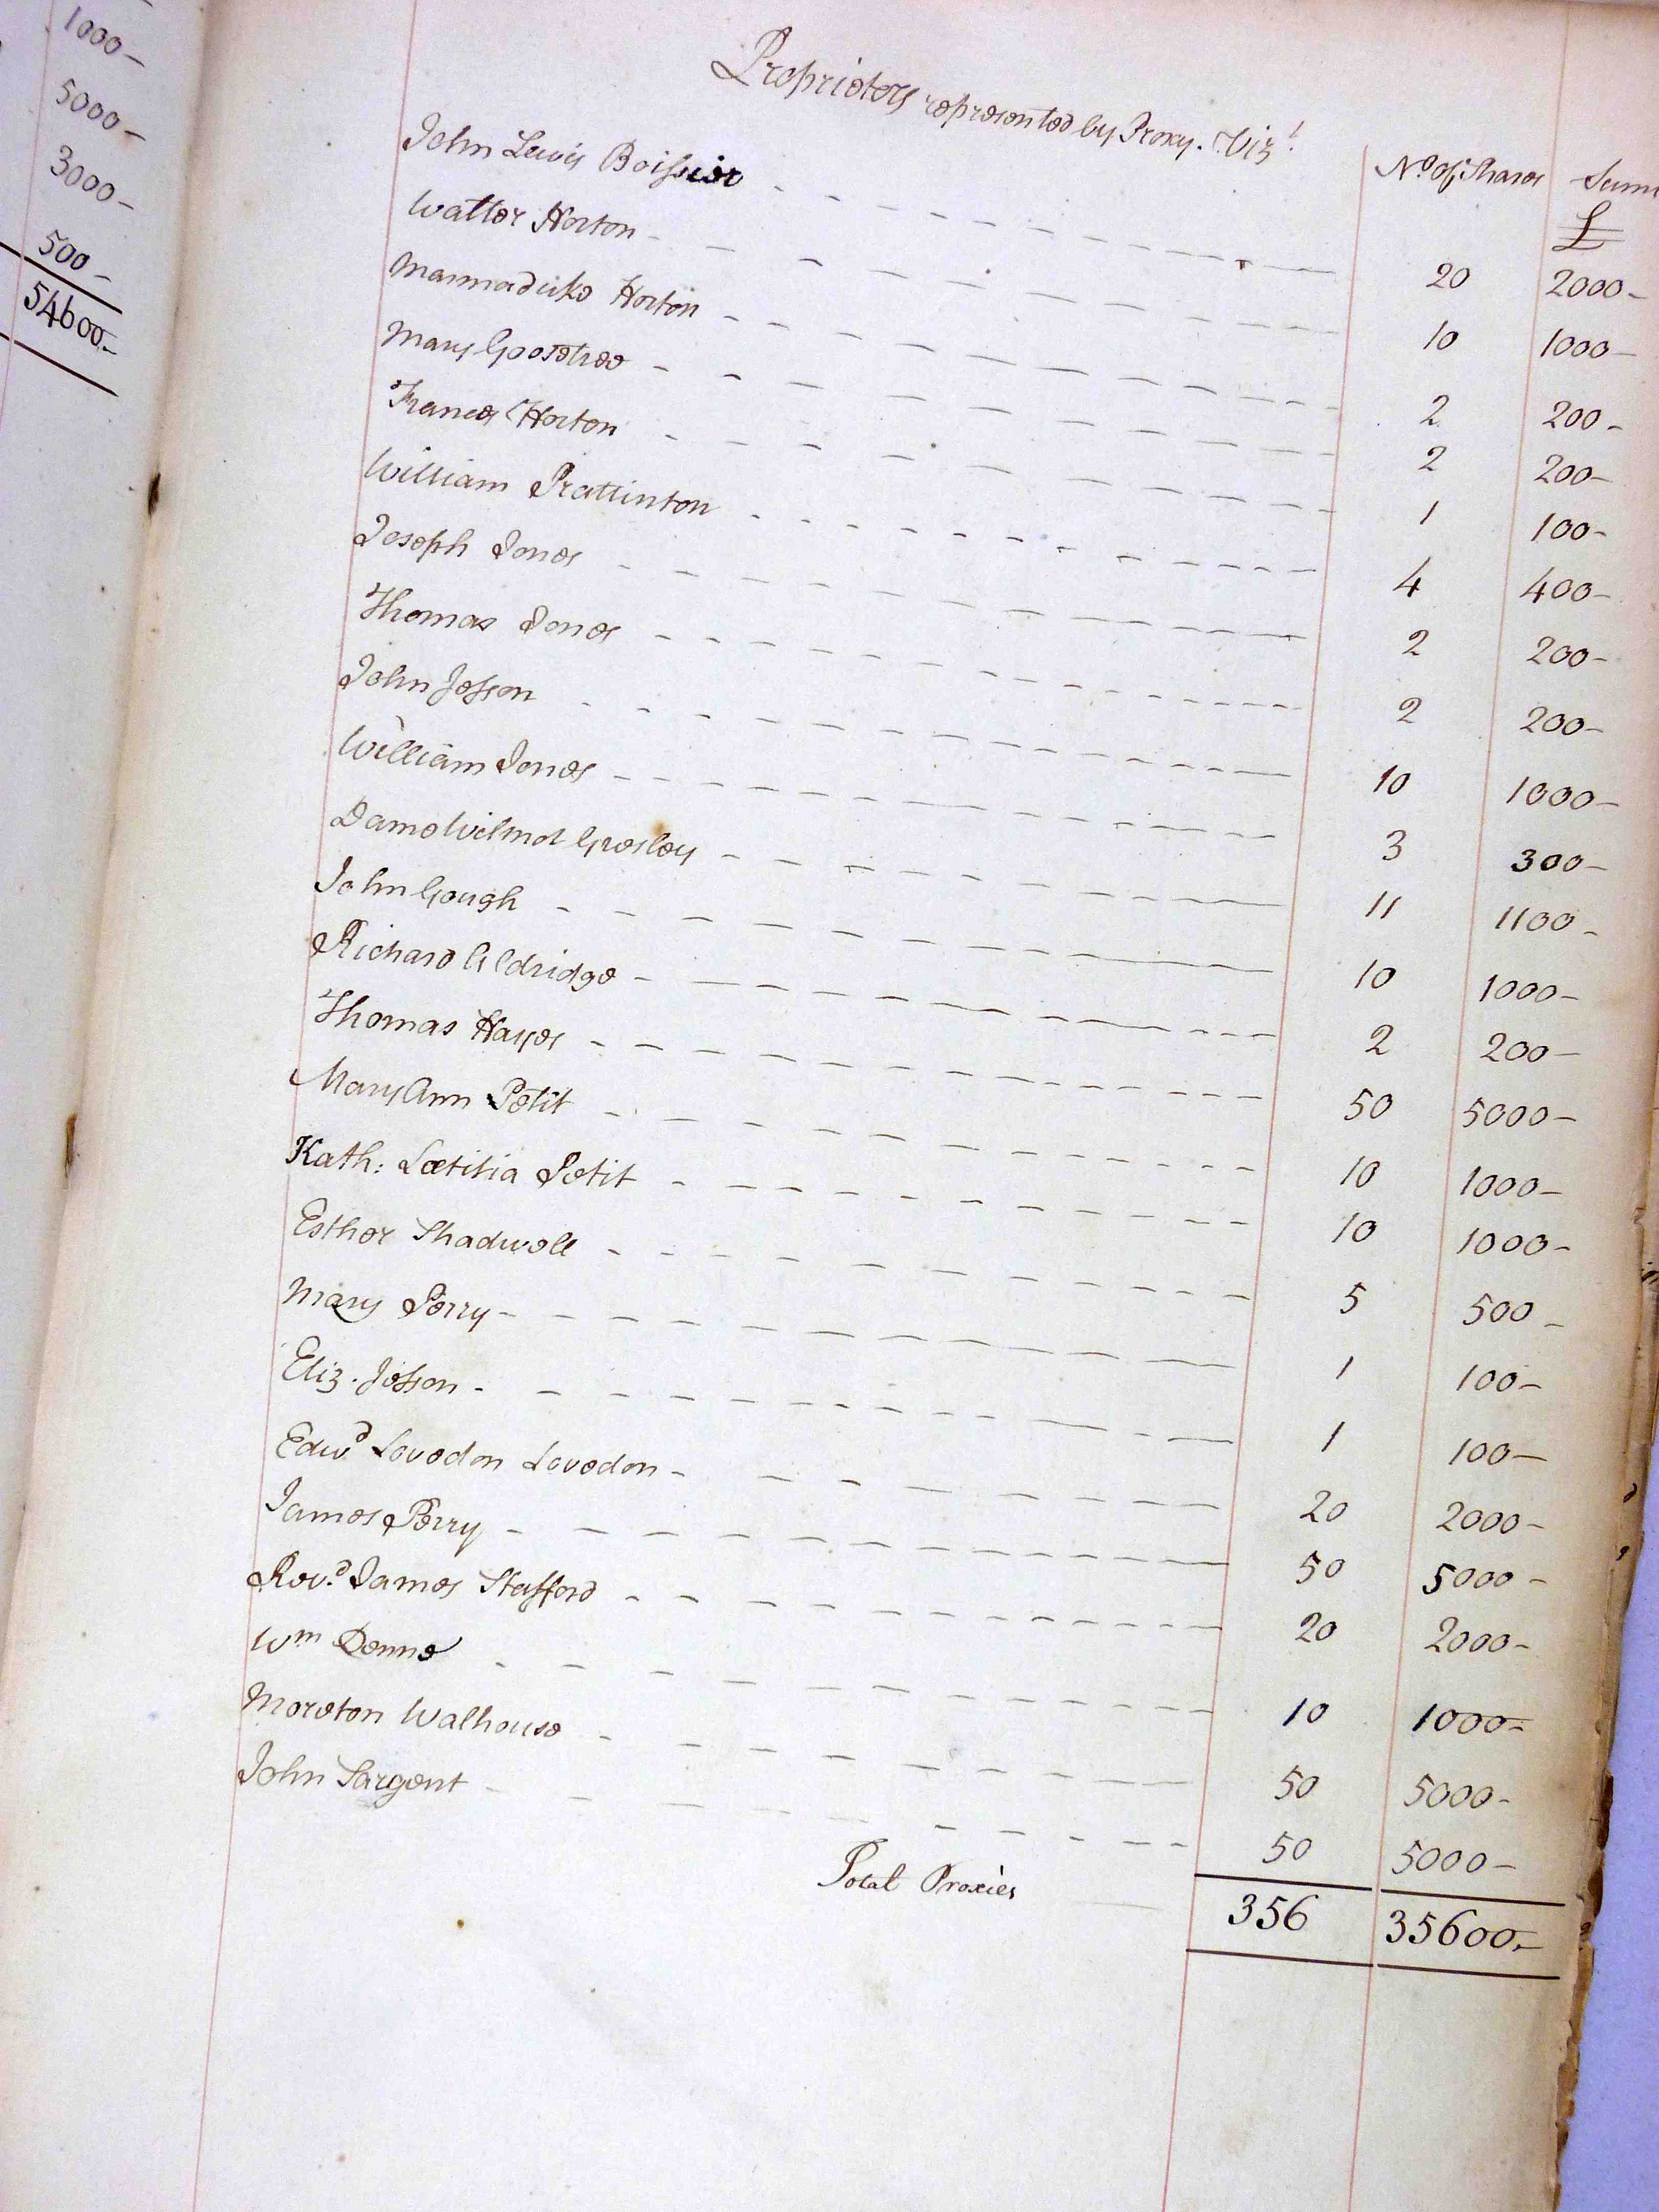 1000-
5000-
3000-
500-
54600-
Proprietors represented by Proxy. Vizt
No of Shares Sum
£
John Lewis Boissier 20 2000-
Walter Horton 10 1000-
Marmaduke Horton 2 200-
Mary Goostree 2 200-
Frances Horton 1 100-
William Prattinton 4 400-
Joseph Jones 2 200-
Thomas Jones 2 200-
John Jesson 10 1000-
William Jones 3 300-
Dame Wilmot Gresley 11 1100-
John Gough 10 1000-
Richard Aldridge 2 200-
Thomas Hayes 50 5000-
Mary Ann Petit 10 1000-
Kath: Lætitia Petit 10 1000-
Esther Shadwell 5 500-
Mary Perry 1 100-
Eliz. Jesson 1 100-
Edwd Loveden Loveden 20 2000-
James Perry 50 5000-
Revd. James Stafford 20 2000-
Wm Denne 10 1000-
Moreton Walhouse 50 5000-
John Sargent 50 5000-
Total Proxies 356 35600-